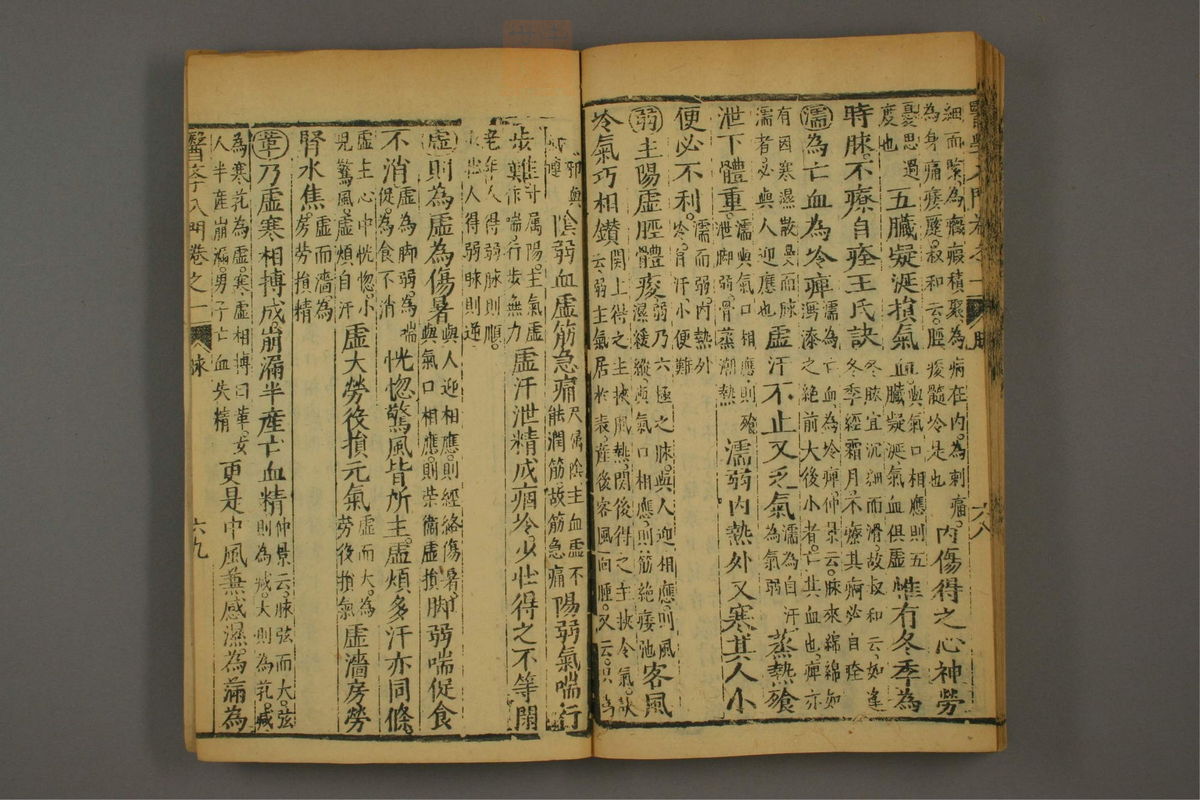 醫學入門卷之一 脉 六八
細而緊為癥瘕積聚為病在內。為刺痛。
為身痛痿蹷。叔和云。脛痠髓冷是也 內傷得之心神勞
憂思過
度也 五臟凝涎損氣血 與氣口相應則五
臟凝涎。氣血俱虛 惟有冬季為
時脉。不療自痊王氏訣 冬脉宜沉細而滑。故叔和云。如逢
冬季經霜月。不療其病必自痊
濡為亡血為冷痺 亡血為冷痺。仲景云。脉來綿綿如
瀉漆之絶前大後小者。亡其血也。痺亦
有因寒濕散漫而脉
濡者。必與人迎應也 虛汗不止又乏氣 濡為自汗
為氣弱 蒸熱飱
泄下體重。 濡與氣口相應。則飱
泄脚弱。骨蒸潮熱 濡弱內熱外又寒其人小
便必不利。 濡而弱。內熱外
冷。自汗。小便難
弱主陽虛脛體痠 弱乃六極之脉。與人迎相應。則風
濕緩縱。與氣口相應。則筋絶痿弛 客風
冷氣巧相鑽 關上得之主挾風熱。關後得之主挾冷氣。訣
云。弱主氣居於表。産後客風面腫。又云。只為
邪與
腫 陰弱血虛筋急痛 尺偏陰主血虛不
能潤筋。故筋急痛 陽弱氣喘行
步難 寸属陽。主氣虛
作喘。行步無力 虛汗泄精成痼冷。少壯得之不等閑
老年人得弱脉則順。
少壯人得弱脉則逆
虛則為虛為傷暑 與人迎相應。則經絡傷暑。
與氣口相應。則榮衛虛損 脚弱喘促食
不消 虛為脚弱為喘
促為食不消 恍惚驚風皆所主。虛煩多汗亦同條。
虛主心中恍惚。小
兒驚風。虛煩自汗 虛大勞役損元氣 虛而大。為
勞役損氣 虛濇房勞
腎水焦 虛而濇。為
房勞損精
革乃虛寒相搏成。崩漏半産亡血精 仲景云。脉弦而大。弦
則為減。大則為芤。減
為寒。芤為虛。寒虛相搏曰革。女
人半産崩漏。男子亡血失精 更是中風兼感濕。為滿為
醫學入門卷之一 脉 六九